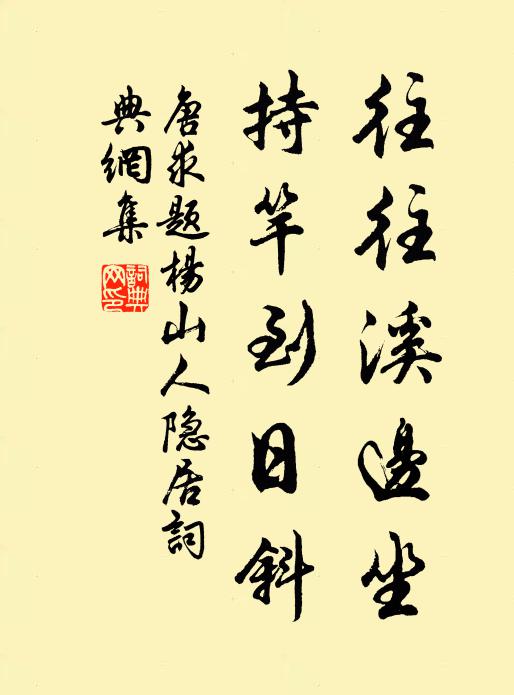 往往溪邊坐
持竿到日斜
唐求题楊山人隐居詞
典網集
詞典网印